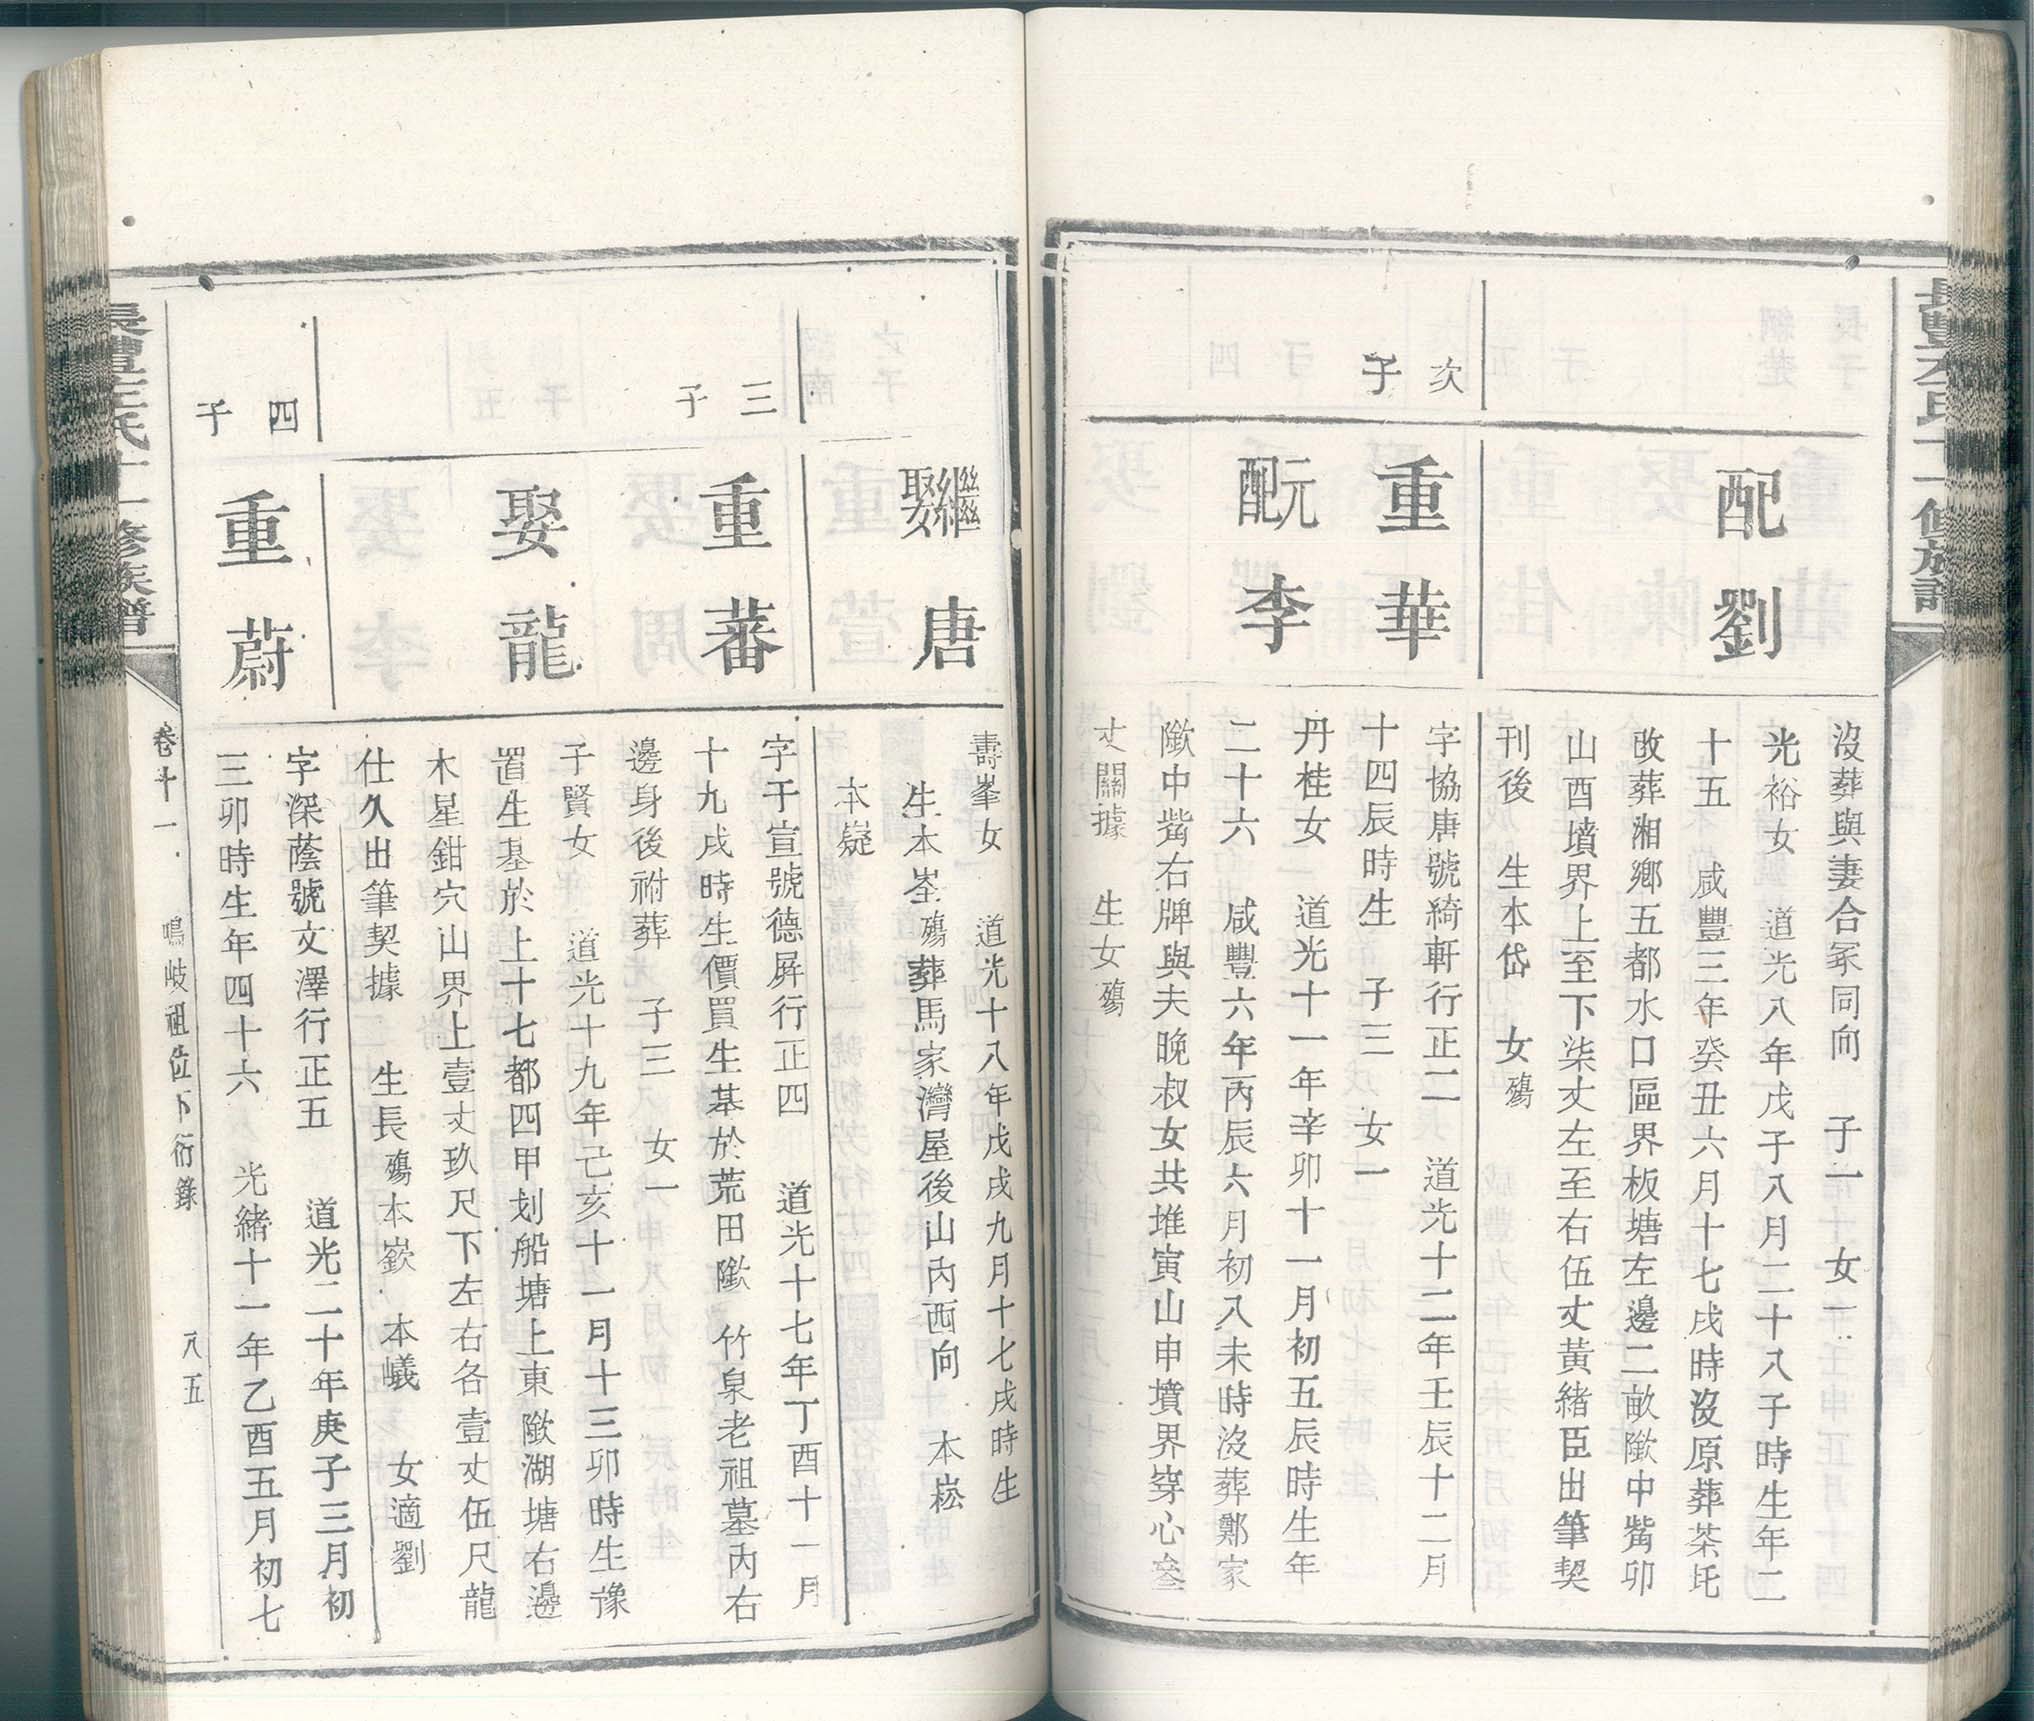 配劉
沒葬與妻合冢同向　子一　女一
光裕女　道光八年戊子八月二十八子時生年二
十五　咸豐三年癸丑六月十七戌時沒原葬茶圫
改葬湘鄉五都水口區界板塘左邊二畝隞中觜卯
山酉墳界上至下柒丈左至右伍丈黃緒臣出筆契
刊後　生本岱　女殤
次子
重華
元配李
字協唐號綺軒行正二　道光十二年壬辰十二月
十四辰時生　子三　女一
丹桂女　道光十一年辛卯十一月初五辰時生年
二十六　咸豐六年丙辰六月初八未時沒葬鄭家
隞中觜右牌與夫晚叔女共堆寅山申墳界穿心叄
丈關據　生女殤
繼娶唐
壽峯女　道光十八年戊戌九月十七戌時生
生本崟殤葬馬家灣屋後山內西向　本崧
本嶷
三子
重蕃
娶龍
字于宣號德屏行正四　道光十七年丁酉十一月
十九戌時生價買生基於荒田隞　竹泉老祖墓內右
邊身後祔葬　子三　女一
子賢女　道光十九年己亥十一月十三卯時生豫
置生基於上十七都四甲划船塘上東隞湖塘右邊
木星鉗穴山界上壹丈玖尺下左右各壹丈伍尺龍
仕久出筆契據　生長殤本嶔　本巇　女適劉
四子
重蔚
字深蔭號文澤行正五　道光二十年庚子三月初
三卯時生年四十六　光緒十一年乙酉五月初七
卷十一　鳴岐祖位下衍錄　八五
十一修族譜